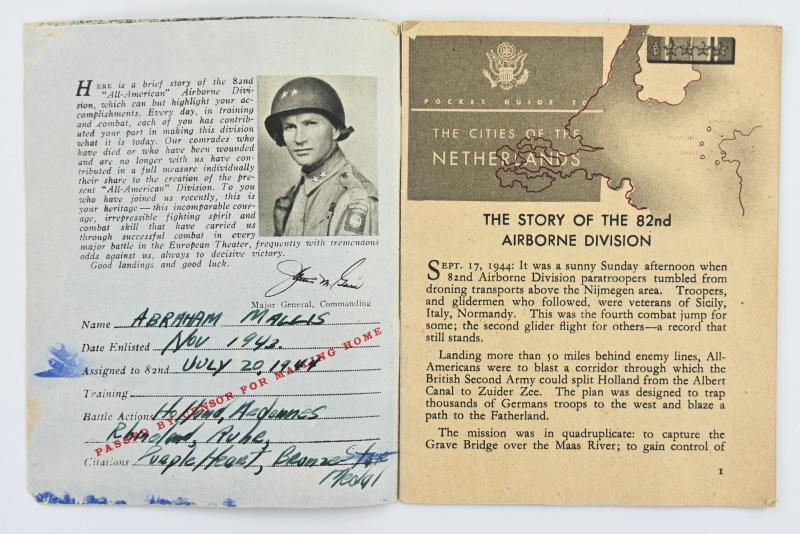 HERE is a brief story of the 82nd
"All-American" Airborne Divi-
sion, which can but highlight your ac-
complishments. Every day, in training
and combat, each of you has contrib-
uted your part in making this division
what it is today. Our comrades who
have died or who have been wounded
and are no longer with us have con-
tributed in a full measure individually
their share to the creation of the pre-
sent "All-American" Division. To you
who have joined us recently, this is
your heritage — this incomparable cour-
age, irrepressible fighting spirit and
combat skill that have carried us
through successful combat in every
major battle in the European Theater, frequently with tremendous
odds against us, always to decisive victory.
Good landings and good luck.
Major General, Commanding
Name ABRAHAM MALLIS
Date Enlisted NOV 1942
Assigned to 82nd JULY 20, 1944
Training
Battle Actions Holland, Ardennes
Rhineland, Ruhr,
Citations Purple Heart, Bronze Star
Medal
PASSED BY CENSOR FOR MAILING HOME
POCKET GUIDE TO
THE CITIES OF THE
NETHERLANDS
THE STORY OF THE 82nd
AIRBORNE DIVISION
SEPT. 17, 1944: It was a sunny Sunday afternoon when
82nd Airborne Division paratroopers tumbled from
droning transports above the Nijmegen area. Troopers,
and glidermen who followed, were veterans of Sicily,
Italy, Normandy. This was the fourth combat jump for
some; the second glider flight for others—a record that
still stands.
Landing more than 50 miles behind enemy lines, All-
Americans were to blast a corridor through which the
British Second Army could split Holland from the Albert
Canal to Zuider Zee. The plan was designed to trap
thousands of Germans troops to the west and blaze a
path to the Fatherland.
The mission was in quadruplicate: to capture the
Grave Bridge over the Maas River; to gain control of
1